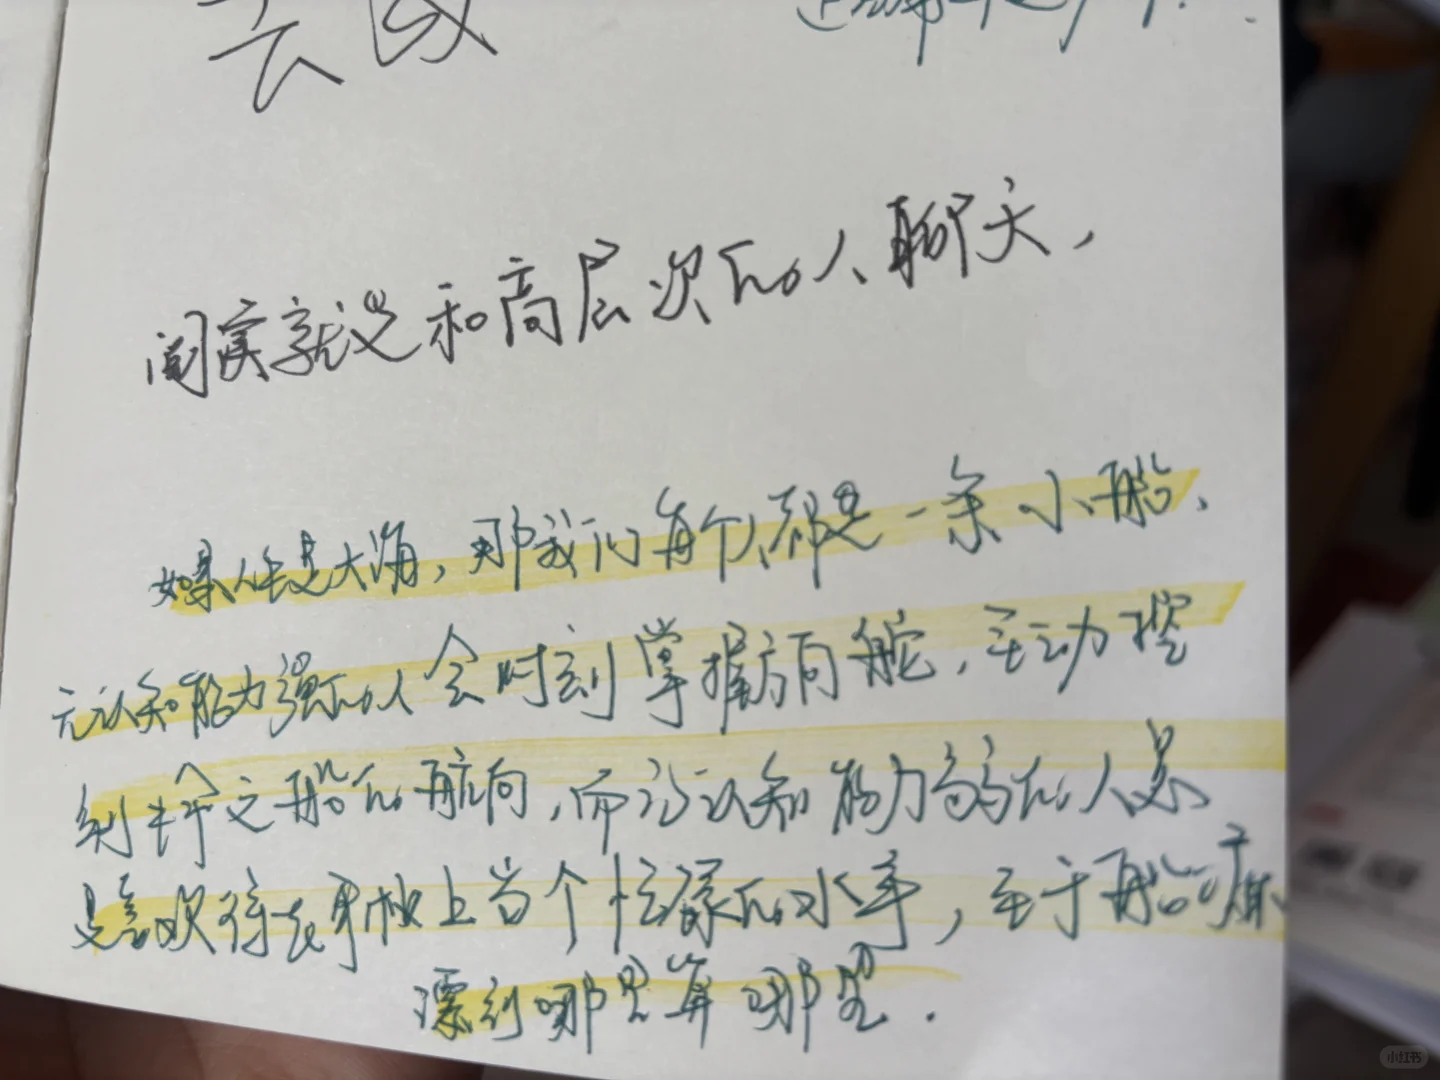 阅读就是和高层次的人聊天,
如果人生是大海,那我们每个人都是一条小船、
元认知能力强的人会时刻掌握方向舵,主动控
制这船的航向,而认知能力弱的人总
是喜欢待在甲板上当个忙碌的水手,至于船
漂到哪里算哪里.
小红书